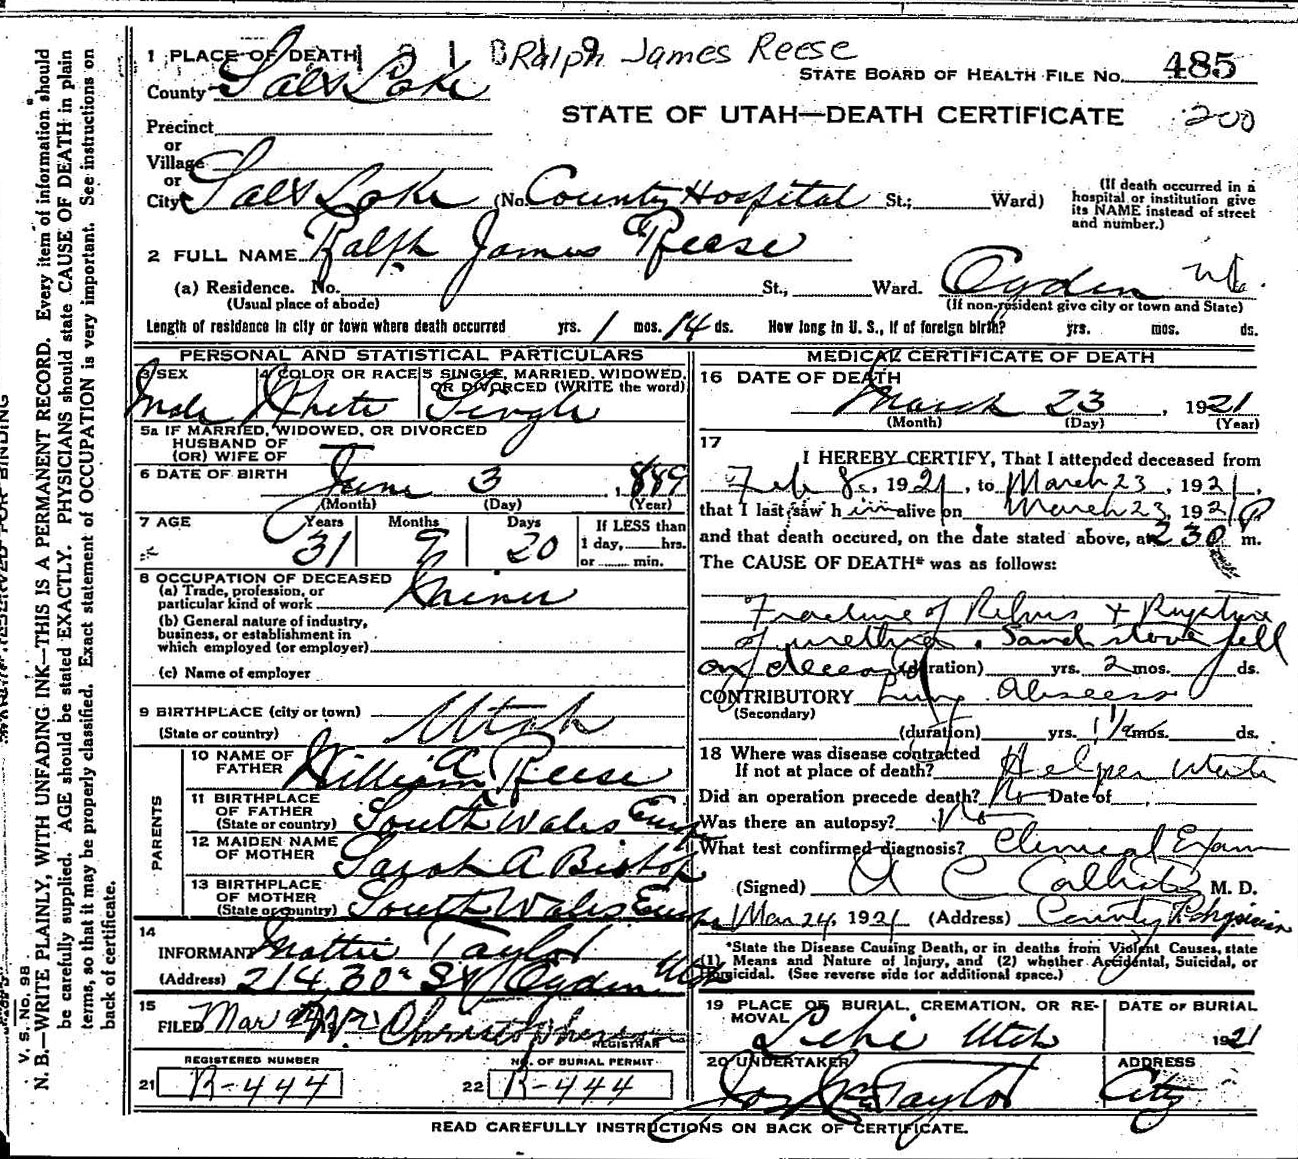 Ralph James Reese
1 PLACE OF DEATH
STATE BOARD OF HEALTH FILE NO. 485
County Salt Lake
STATE OF UTAH—DEATH CERTIFICATE 200
Precinct
or
Village
or
City Salt Lake (No. County Hospital St.; Ward)
(If death occurred in a hospital or institution give its NAME instead of street and number.)
2 FULL NAME Ralph James Reese
(a) Residence. No. St., Ward. Ogden
(Usual place of abode) (If non-resident give city or town and State)
Length of residence in city or town where death occurred yrs. 1 mos. 14 ds. How long in U. S., if of foreign birth? yrs. mos. ds.
PERSONAL AND STATISTICAL PARTICULARS
3 SEX 4 COLOR OR RACE 5 SINGLE, MARRIED, WIDOWED, OR DIVORCED (WRITE the word)
Male White Single
5a IF MARRIED, WIDOWED, OR DIVORCED
HUSBAND OF
(OR) WIFE OF
6 DATE OF BIRTH June 3, 1889
(Month) (Day) (Year)
7 AGE Years Months Days If LESS than
31 9 20 1 day, hrs.
or min.
8 OCCUPATION OF DECEASED
(a) Trade, profession, or
particular kind of work Miner
(b) General nature of industry,
business, or establishment in
which employed (or employer)
(c) Name of employer
9 BIRTHPLACE (city or town)
(State or country) Utah
PARENTS
10 NAME OF FATHER William A Reese
11 BIRTHPLACE OF FATHER (State or country) South Wales Europe
12 MAIDEN NAME OF MOTHER Sarah A Bishop
13 BIRTHPLACE OF MOTHER (State or country) South Wales Europe
14
INFORMANT Mattie Taylor
(Address) 214 30th St Ogden Utah
15
FILED Mar Christopherson
REGISTRAR
REGISTERED NUMBER NO. OF BURIAL PERMIT
21 R-444 22 R-444
MEDICAL CERTIFICATE OF DEATH
16 DATE OF DEATH
March 23, 1921
(Month) (Day) (Year)
17
I HEREBY CERTIFY, That I attended deceased from
Feb 8, 1921, to March 23, 1921,
that I last saw him alive on March 23, 1921
and that death occured, on the date stated above, at 230 P m.
The CAUSE OF DEATH* was as follows:
Fracture of Pelvis + Rupture
of urethra. Sand stone fell
on deceased (duration) yrs. 2 mos. ds.
CONTRIBUTORY Lung Abscess
(Secondary)
(duration) yrs. 1 1/2 mos. ds.
18 Where was disease contracted
If not at place of death? Helper Utah
Did an operation precede death? No Date of
Was there an autopsy? No
What test confirmed diagnosis? Clinical Exam
(Signed) M. D.
Mar 24, 1921 (Address) County Physician
*State the Disease Causing Death, or in deaths from Violent Causes, state
(1) Means and Nature of Injury, and (2) whether Accidental, Suicidal, or
Homicidal. (See reverse side for additional space.)
19 PLACE OF BURIAL, CREMATION, OR REMOVAL DATE OF BURIAL
Lehi Utah 1921
20 UNDERTAKER ADDRESS
Taylor City
READ CAREFULLY INSTRUCTIONS ON BACK OF CERTIFICATE.
V. S. No. 98
N. B.—WRITE PLAINLY, WITH UNFADING INK—THIS IS A PERMANENT RECORD. Every item of information should
be carefully supplied. AGE should be stated EXACTLY. PHYSICIANS should state CAUSE OF DEATH in plain
terms, so that it may be properly classified. Exact statement of OCCUPATION is very important. See instructions on
back of certificate.